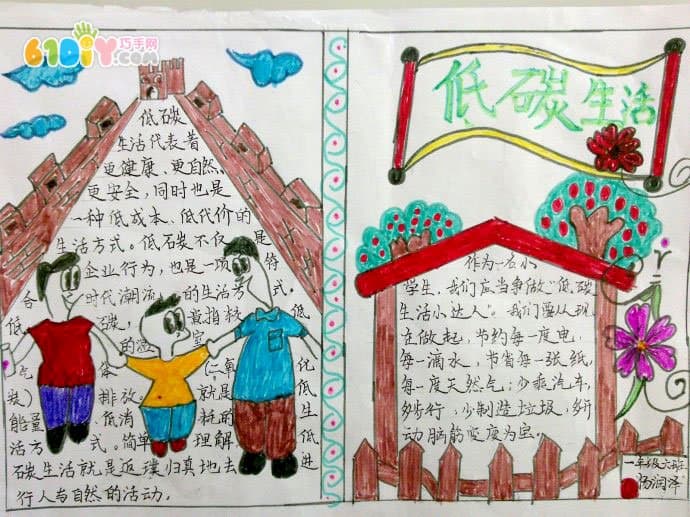 61DIY巧手网
低碳
生活代表着
更健康、更自然、
更安全,同时也是
一种低成本、低代价的
生活方式。低碳不仅是
企业行为,也是一项符
合时代潮流的生活方式。
低碳,意指较低
的温室
气体(二氧化
碳)排放。就是低
能量、低消耗的生
活方式。简单理解低
碳生活就是返璞归真地去进
行人与自然的活动。
低碳生活
作为一名小
学生,我们应当争做“低碳
生活小达人”。我们要从现
在做起,节约每一度电,
每一滴水,节省每一张纸,
每一度天然气;少乘汽车,
多步行,少制造垃圾,多开
动脑筋变废为宝。
一年级六班
杨润泽